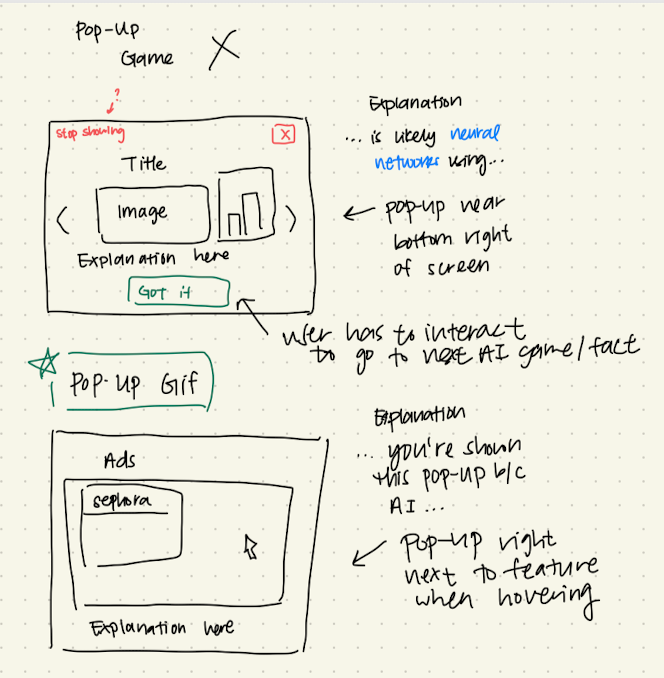 Pop-Up
Game X
?
Stop showing
X
Title
Image
Explanation here
Got it
Explanation
... is likely neural
networks using...
pop-up near
bottom right
of screen
user has to interact
to go to next AI game/fact
Pop-Up Gif
Ads
sephora
Explanation here
Explanation
... you're shown
this pop-up b/c
AI ...
Pop-up right
next to feature
when hovering